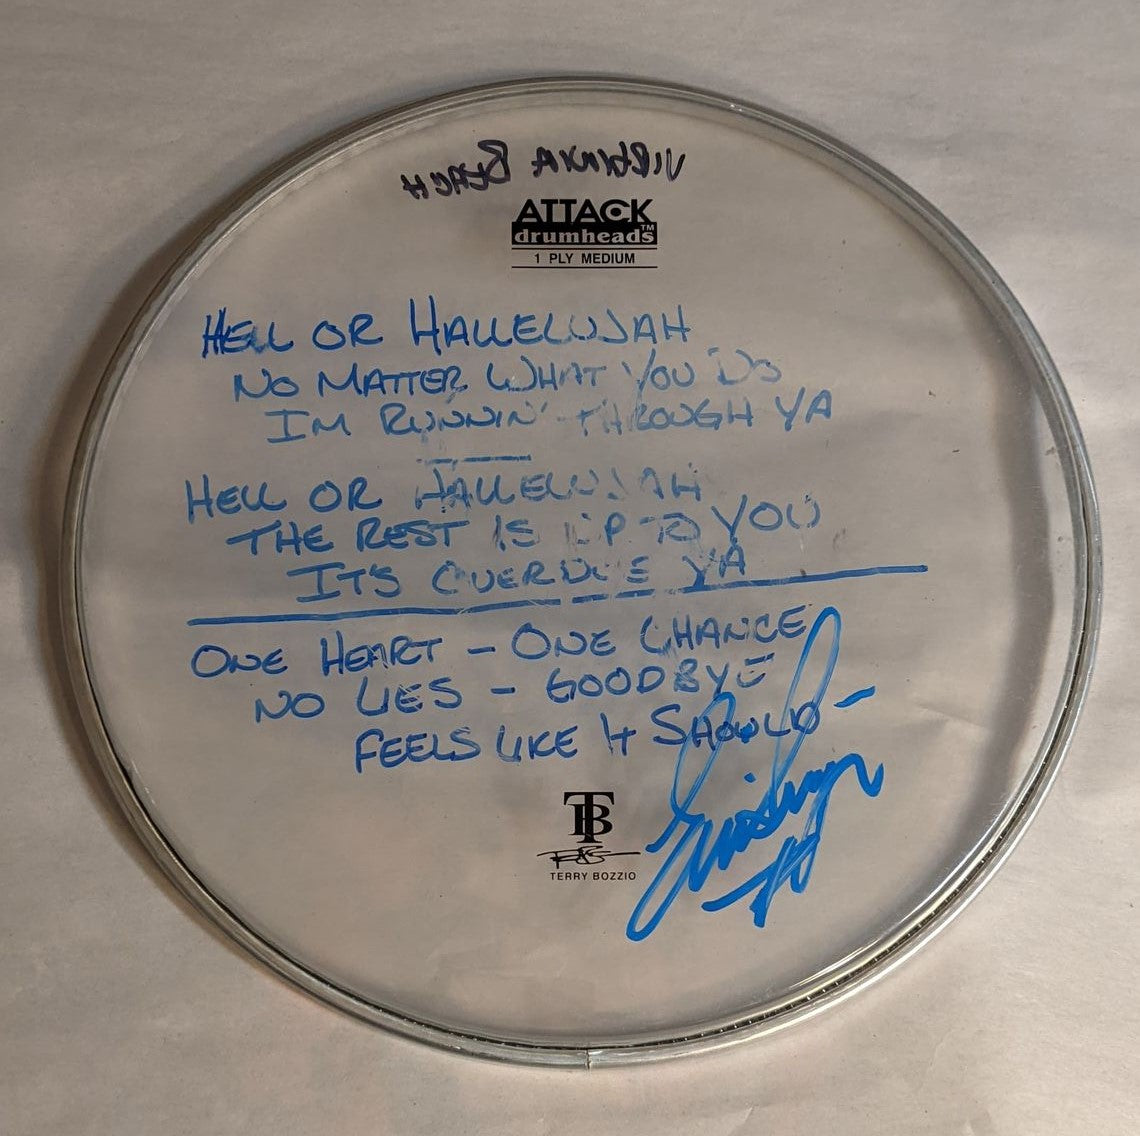 VIRGINIA BEACH
ATTACK
drumheads™
1 PLY MEDIUM
HELL OR HALLELUJAH
NO MATTER WHAT YOU DO
I'M RUNNIN' THROUGH YA
HELL OR HALLELUJAH
THE REST IS UP TO YOU
IT'S OVERDUE YA
ONE HEART - ONE CHANCE
NO LIES - GOODBYE
FEELS LIKE IT SHOULD -
TB
TERRY BOZZIO